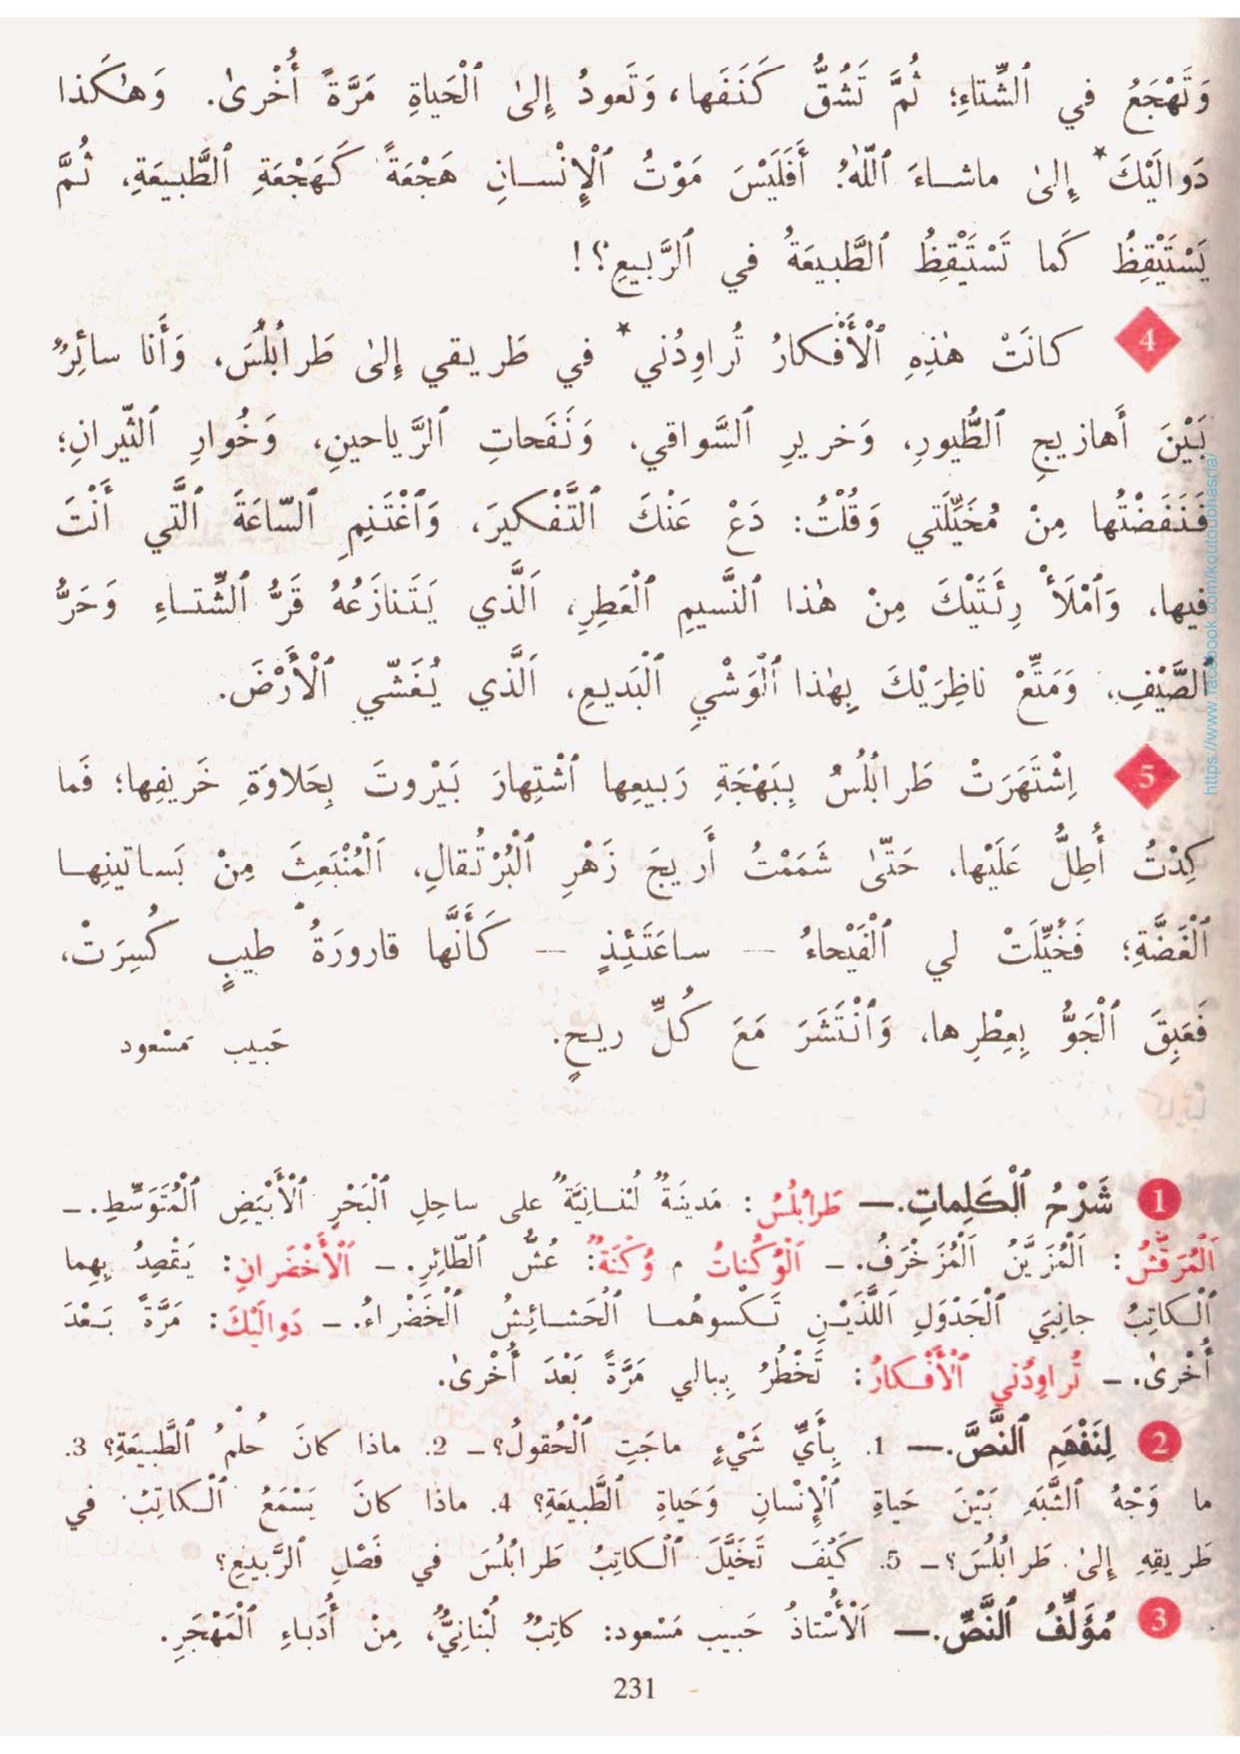 وَتَهْجَعُ في ٱلشِّتاءِ؛ ثُمَّ تَشُقُّ كَنَفَها، وَتَعودُ إِلىٰ ٱلْحَياةِ مَرَّةً أُخْرىٰ. وَهٰكَذا
دَوالَيْكَ* إِلىٰ ماشاءَ ٱللّٰهُ. أَفَلَيْسَ مَوْتُ ٱلْإِنْسانِ هَجْعَةً كَهَجْعَةِ ٱلطَّبيعَةِ، ثُمَّ
يَسْتَيْقِظُ كَما تَسْتَيْقِظُ ٱلطَّبيعَةُ في ٱلرَّبيعِ؟!
4 كانَتْ هٰذِهِ ٱلْأَفْكارُ تُراوِدُني* في طَريقي إِلىٰ طَرابُلُسَ، وَأَنا سائِرٌ
بَيْنَ أَهازيجِ ٱلطُّيورِ، وَخَريرِ ٱلسَّواقي، وَنَفَحاتِ ٱلرَّياحينِ، وَخُوارِ ٱلثّيرانِ؛
فَنَفَضْتُها مِنْ مُخَيِّلَتي وَقُلْتُ: دَعْ عَنْكَ ٱلتَّفْكيرَ، وَٱغْتَنِمِ ٱلسّاعَةَ ٱلَّتي أَنْتَ
فيها، وَٱمْلَأْ رِئَتَيْكَ مِنْ هٰذا ٱلنَّسيمِ ٱلْعَطِرِ، ٱلَّذي يَتَنازَعُهُ قَرُّ ٱلشِّتاءِ وَحَرُّ
ٱلصَّيْفِ، وَمَتِّعْ ناظِرَيْكَ بِهٰذا ٱلْوَشْيِ ٱلْبَديعِ، ٱلَّذي يُغَشّي ٱلْأَرْضَ.
5 اِشْتَهَرَتْ طَرابُلُسُ بِبَهْجَةِ رَبيعِها ٱشْتِهارَ بَيْروتَ بِحَلاوَةِ خَريفِها؛ فَما
كِدْتُ أُطِلُّ عَلَيْها، حَتّىٰ شَمَمْتُ أَريجَ زَهْرِ ٱلْبُرْتُقالِ، ٱلْمُنْبَعِثَ مِنْ بَساتينِها
ٱلْغَضَّةِ؛ فَخُيِّلَتْ لي ٱلْفَيْحاءُ — ساعَتَئِذٍ — كَأَنَّها قارورَةُ طيبٍ كُسِرَتْ،
فَعَبِقَ ٱلْجَوُّ بِعِطْرِها، وَٱنْتَشَرَ مَعَ كُلِّ ريحٍ.
حَبيب مَسْعود
1 شَرْحُ ٱلْكَلِماتِ.— طَرابُلُسُ: مَدينَةٌ لُبْنانِيَّةٌ على ساحِلِ ٱلْبَحْرِ ٱلْأَبْيَضِ ٱلْمُتَوَسِّطِ. ـ
ٱلْمُرَقَّشُ: ٱلْمُزَيَّنُ ٱلْمُزَخْرَفُ. ـ ٱلْوُكُناتُ م وُكْنَةٌ: عُشُّ ٱلطّائِرِ. ـ ٱلْأَخْضَرانِ: يَقْصِدُ بِهِما
ٱلْكاتِبُ جانِبَيِ ٱلْجَدْوَلِ ٱللَّذَيْنِ تَكْسوهُما ٱلْحَشائِشُ ٱلْخَضْراءُ. ـ دَوالَيْكَ: مَرَّةً بَعْدَ
أُخْرىٰ. ـ تُراوِدُني ٱلْأَفْكارُ: تَخْطُرُ بِبالي مَرَّةً بَعْدَ أُخْرىٰ.
2 لِنَفْهَمِ ٱلنَّصَّ.— 1. بِأَيِّ شَيْءٍ ماجَتِ ٱلْحُقولُ؟ ـ 2. ماذا كانَ حُلْمُ ٱلطَّبيعَةِ؟ 3.
ما وَجْهُ ٱلشَّبَهِ بَيْنَ حَياةِ ٱلْإِنْسانِ وَحَياةِ ٱلطَّبيعَةِ؟ 4. ماذا كانَ يَسْمَعُ ٱلْكاتِبُ في
طَريقِهِ إِلىٰ طَرابُلُسَ؟ ـ 5. كَيْفَ تَخَيَّلَ ٱلْكاتِبُ طَرابُلُسَ في فَصْلِ ٱلرَّبيعِ؟
3 مُؤَلِّفُ ٱلنَّصِّ.— ٱلْأُسْتاذُ حَبيب مَسْعود: كاتِبٌ لُبْنانِيٌّ، مِنْ أُدَباءِ ٱلْمَهْجَرِ.
231
https://www.facebook.com/koutoubnasria/